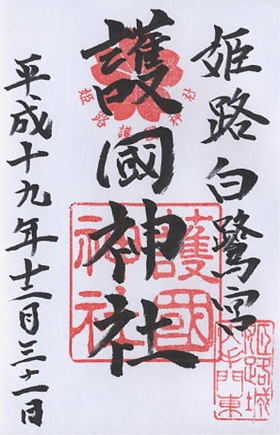 姫路白鷺宮
護國神社
平成十九年十二月三十一日
姫路護國神社
護國神社
姫路城大手門東